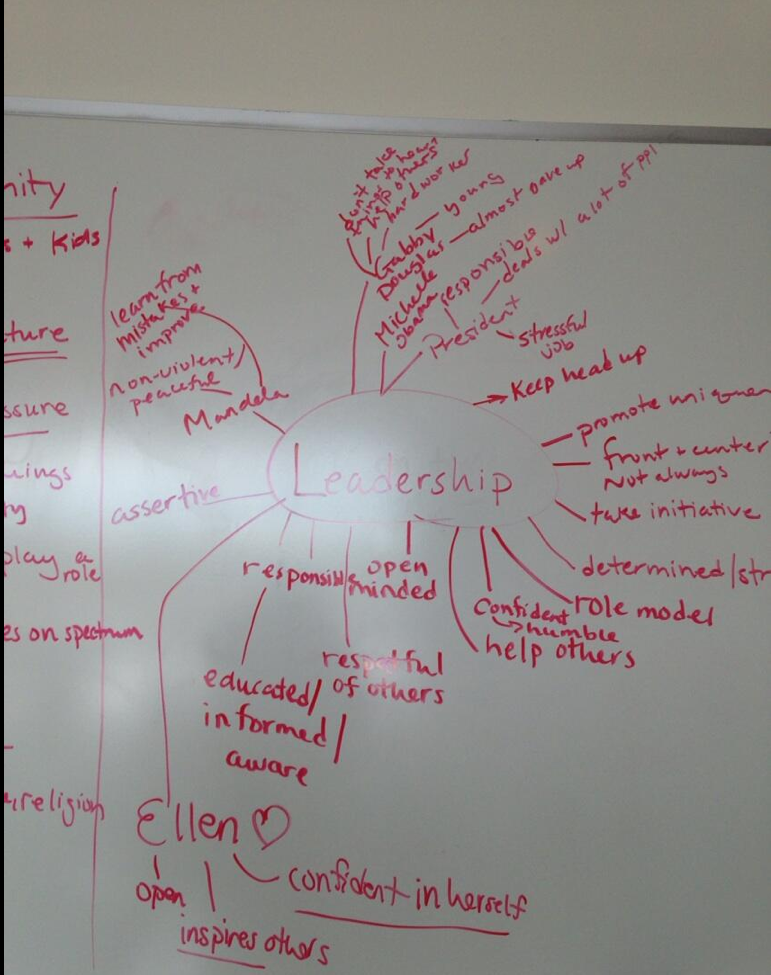 nity
s + Kids
ture
ssure
nings
ty
play a
role
es on spectrum
religion
don't take
things to heart
help others
hard worker
Gabby
Douglas
young
almost gave up
Michelle
Obama
responsible
President
deals w/ a lot of ppl
stressful
job
learn from
mistakes +
improve
non-violent/
peaceful
Mandela
assertive
Leadership
Keep head up
promote uniquene
front + center
Not always
take initiative
determined/str
role model
Confident
→ humble
help others
open
minded
responsible
respectful
of others
educated/
informed/
aware
Ellen ♡
open
inspires others
confident in herself